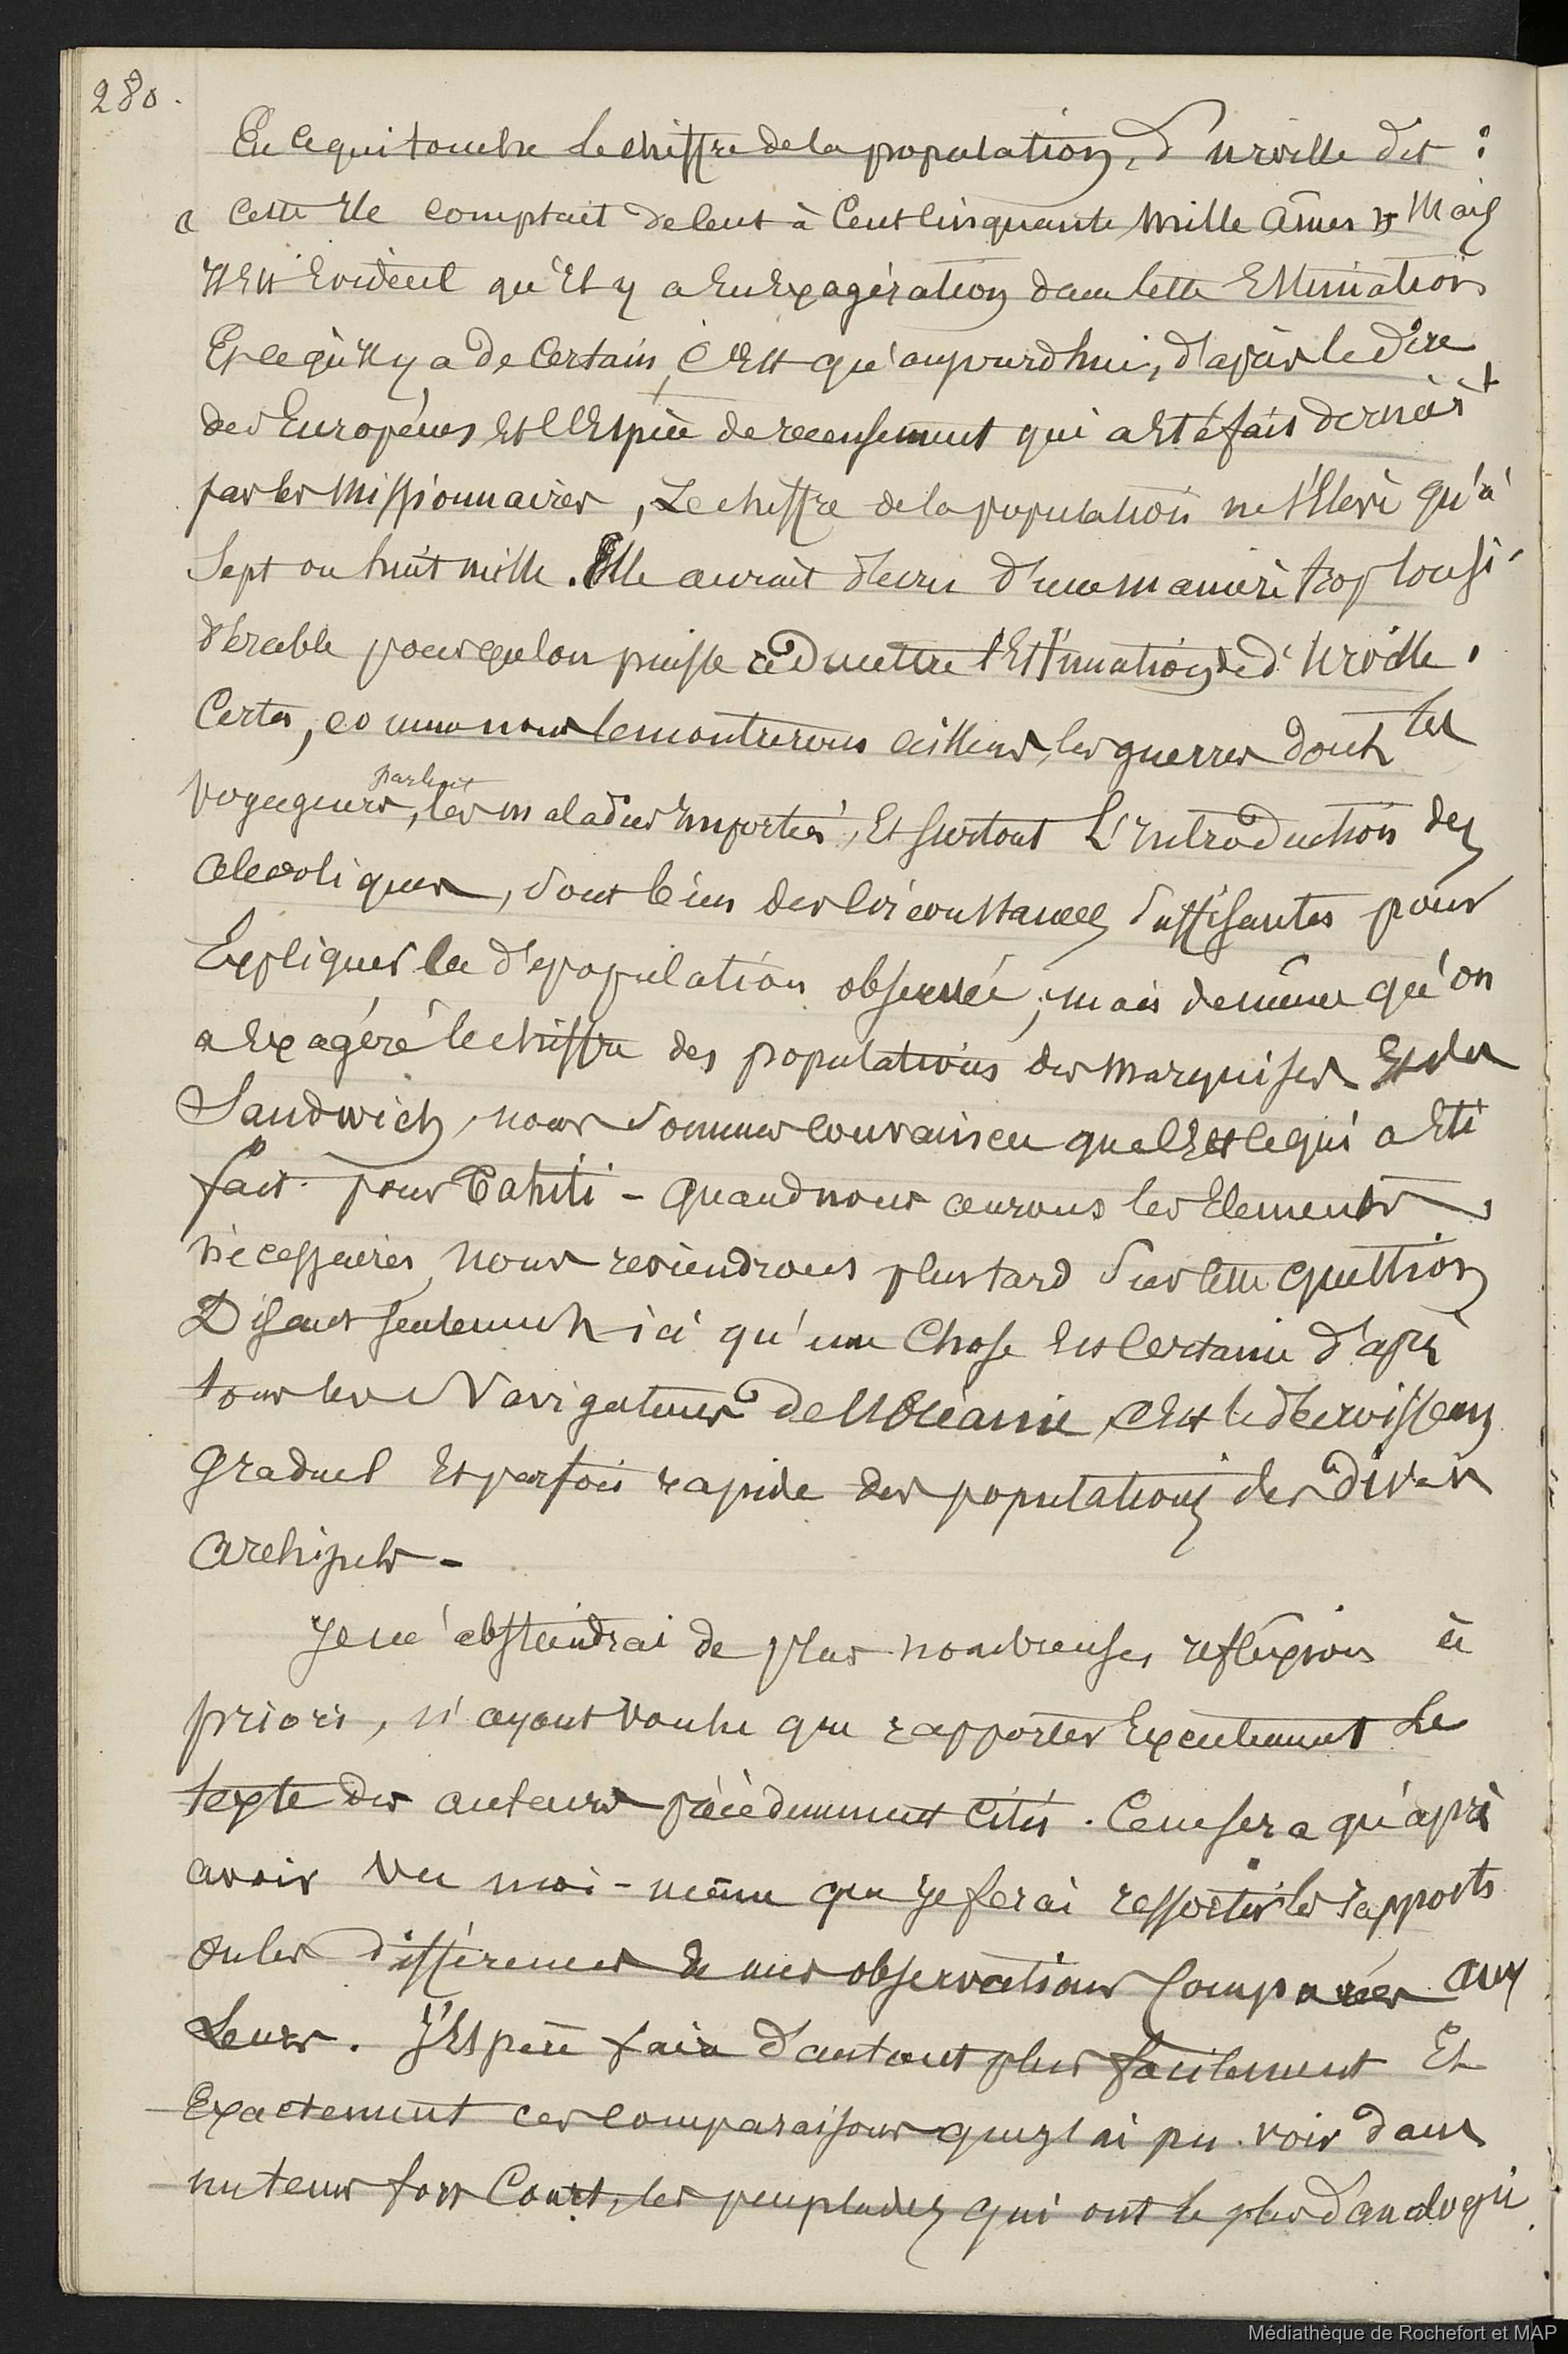 280.
En ce qui touche le chiffre de la population, d'Urville dit :
« Cette île comptait de cent à cent cinquante mille âmes » Mais
il est évident qu'il y a eu exagération dans cette estimation
Et ce qu'il y a de certain, c'est qu'aujourd'hui, d'après le dire
des Européens et l'espèce de recensement qui a été fait dernièrt
par les missionnaires, le chiffre de la population ne s'élève qu'à
sept ou huit mille. Elle aurait décru d'une manière trop consi-
dérable pour que l'on puisse admettre l'estimation de d'Urville.
Certes, comme nous le montrerons ailleurs, les guerres dont les
voyageurs parlent, les maladies importées, et surtout l'introduction des
alcooliques, sont bien des circonstances suffisantes pour
expliquer la dépopulation observée ; mais de même qu'on
a exagéré le chiffre des populations des Marquises et des
Sandwich, nous sommes convaincu que c'est ce qui a été
fait pour Tahiti - Quand nous aurons les éléments
nécessaires, nous reviendrons plus tard sur cette question
Disons seulement ici qu'une chose est certaine d'après
tous les Navigateurs de l'Océanie, c'est le décroissem
graduel et parfois rapide des populations des divers
archipels -
Je m'abstiendrai de plus nombreuses réflexions à
priori, n'ayant voulu que rapporter exactement le
texte des auteurs précédemment cités. Ce ne sera qu'après
avoir vu moi-même que je ferai ressortir les rapports
ou les différences de mes observations comparées aux
leurs. J'espère faire d'autant plus facilement et
exactement ces comparaisons que j'ai pu voir dans
un temps fort court, les peuplades qui ont le plus d'analogie
Médiathèque de Rochefort et MAP